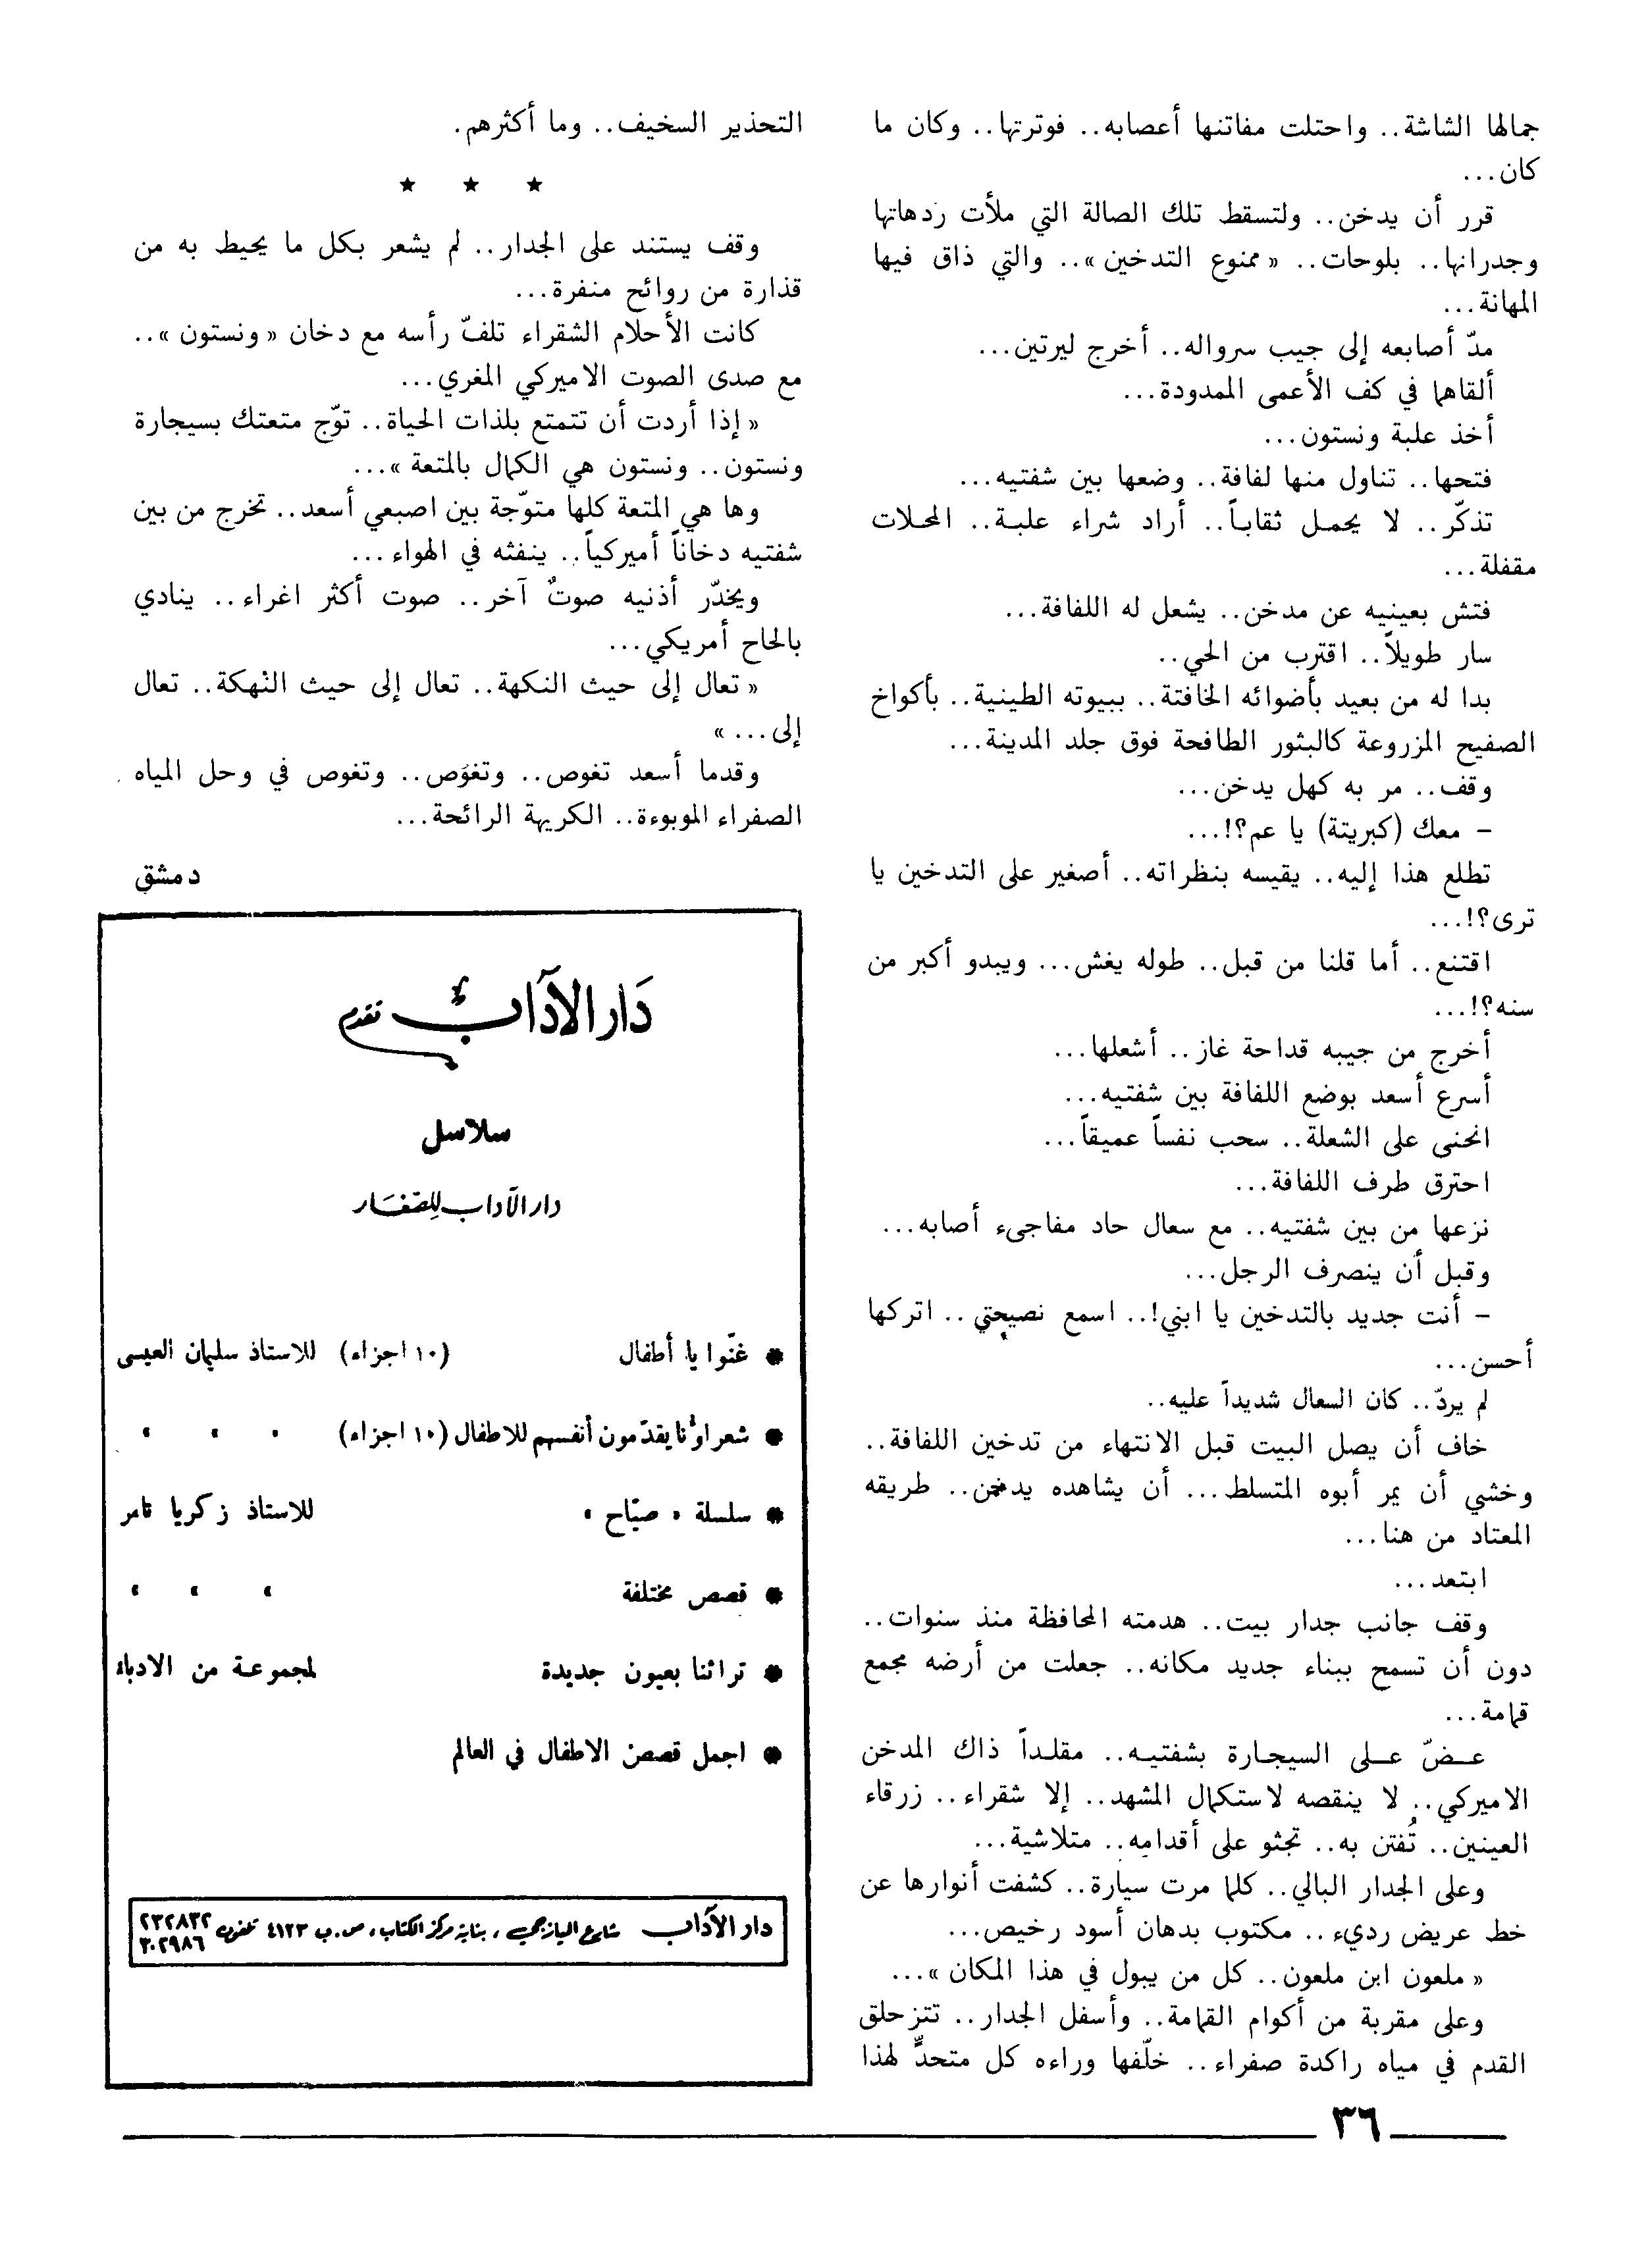 جمالها الشاشة.. واحتلت مفاتنها أعصابه.. فوترتها.. وكان ما
كان...
قرر أن يدخن.. ولتسقط تلك الصالة التي ملأت ردهاتها
وجدرانها.. بلوحات.. «ممنوع التدخين».. والتي ذاق فيها
المهانة...
مدّ أصابعه إلى جيب سرواله.. أخرج ليرتين...
ألقاهما في كف الأعمى الممدودة...
أخذ علبة ونستون...
فتحها.. تناول منها لفافة.. وضعها بين شفتيه...
تذكّر.. لا يحمل ثقاباً.. أراد شراء علبة.. المحلات
مقفلة...
فتش بعينيه عن مدخن.. يشعل له اللفافة...
سار طويلاً.. اقترب من الحي..
بدا له من بعيد بأضوائه الخافتة.. ببيوته الطينية.. بأكواخ
الصفيح المزروعة كالبثور الطافحة فوق جلد المدينة...
وقف.. مر به كهل يدخن...
- معك (كبريتة) يا عم؟!...
تطلع هذا إليه.. يقيسه بنظراته.. أصغير على التدخين يا
ترى؟!...
اقتنع.. أما قلنا من قبل.. طوله يغش... ويبدو أكبر من
سنه؟!...
أخرج من جيبه قداحة غاز.. أشعلها...
أسرع أسعد بوضع اللفافة بين شفتيه...
انحنى على الشعلة.. سحب نفساً عميقاً...
احترق طرف اللفافة...
نزعها من بين شفتيه.. مع سعال حاد مفاجىء أصابه...
وقبل أن ينصرف الرجل...
- أنت جديد بالتدخين يا ابني!.. اسمع نصيحتي.. اتركها
أحسن...
لم يردّ.. كان السعال شديداً عليه..
خاف أن يصل البيت قبل الانتهاء من تدخين اللفافة..
وخشي أن يمر أبوه المتسلط... أن يشاهده يدخن.. طريقه
المعتاد من هنا...
ابتعد...
وقف جانب جدار بيت.. هدمته المحافظة منذ سنوات..
دون أن تسمح ببناء جديد مكانه.. جعلت من أرضه مجمع
قمامة...
عضّ على السيجارة بشفتيه.. مقلداً ذاك المدخن
الاميركي.. لا ينقصه لاستكمال المشهد.. إلا شقراء.. زرقاء
العينين.. تُفتن به.. تجثو على أقدامه.. متلاشية...
وعلى الجدار البالي.. كلما مرت سيارة.. كشفت أنوارها عن
خط عريض رديء.. مكتوب بدهان أسود رخيص...
«ملعون ابن ملعون.. كل من يبول في هذا المكان»...
وعلى مقربة من أكوام القمامة.. وأسفل الجدار.. تتزحلق
القدم في مياه راكدة صفراء.. خلّفها وراءه كل متحدٍّ لهذا
التحذير السخيف.. وما أكثرهم.
★ ★ ★
وقف يستند على الجدار.. لم يشعر بكل ما يحيط به من
قذارة من روائح منفرة...
كانت الأحلام الشقراء تلفّ رأسه مع دخان «ونستون»..
مع صدى الصوت الاميركي المغري...
«إذا أردت أن تتمتع بلذات الحياة.. توّج متعتك بسيجارة
ونستون.. ونستون هي الكمال بالمتعة»...
وها هي المتعة كلها متوّجة بين اصبعي أسعد.. تخرج من بين
شفتيه دخاناً أميركياً.. ينفثه في الهواء...
ويخدّر أذنيه صوتٌ آخر.. صوت أكثر اغراء.. ينادي
بالحاح أمريكي...
«تعال إلى حيث النكهة.. تعال إلى حيث النْهكة.. تعال
إلى...»
وقدما أسعد تغوص.. وتغوَص.. وتغوص في وحل المياه
الصفراء الموبوءة.. الكريهة الرائحة...
دمشق
دَار الآدَابْ تقدم
سلاسل
دار الآداب للصّغَار
✽ غنّوا يا أطفال (١٠ اجزاء) للاستاذ سليمان العيسى
✽ شعراؤنا يقدّمون أنفسهم للاطفال (١٠ اجزاء) » » »
✽ سلسلة «صيّاح» للاستاذ زكريا تامر
✽ قصص مختلفة » » »
✽ تراثنا بعيون جديدة لمجموعة من الادباء
✽ اجمل قصص الاطفال في العالم
دار الآداب شارع اليازجي، بناية مركز الكتاب، ص.ب ٤١٢٣ تلفون ٢٣٢٨٣٢
٣٠٢٩٨٦
٣٦